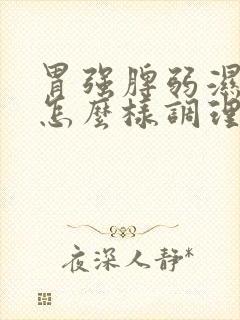 胃强脾弱濕
怎麼樣調理
夜深人静*